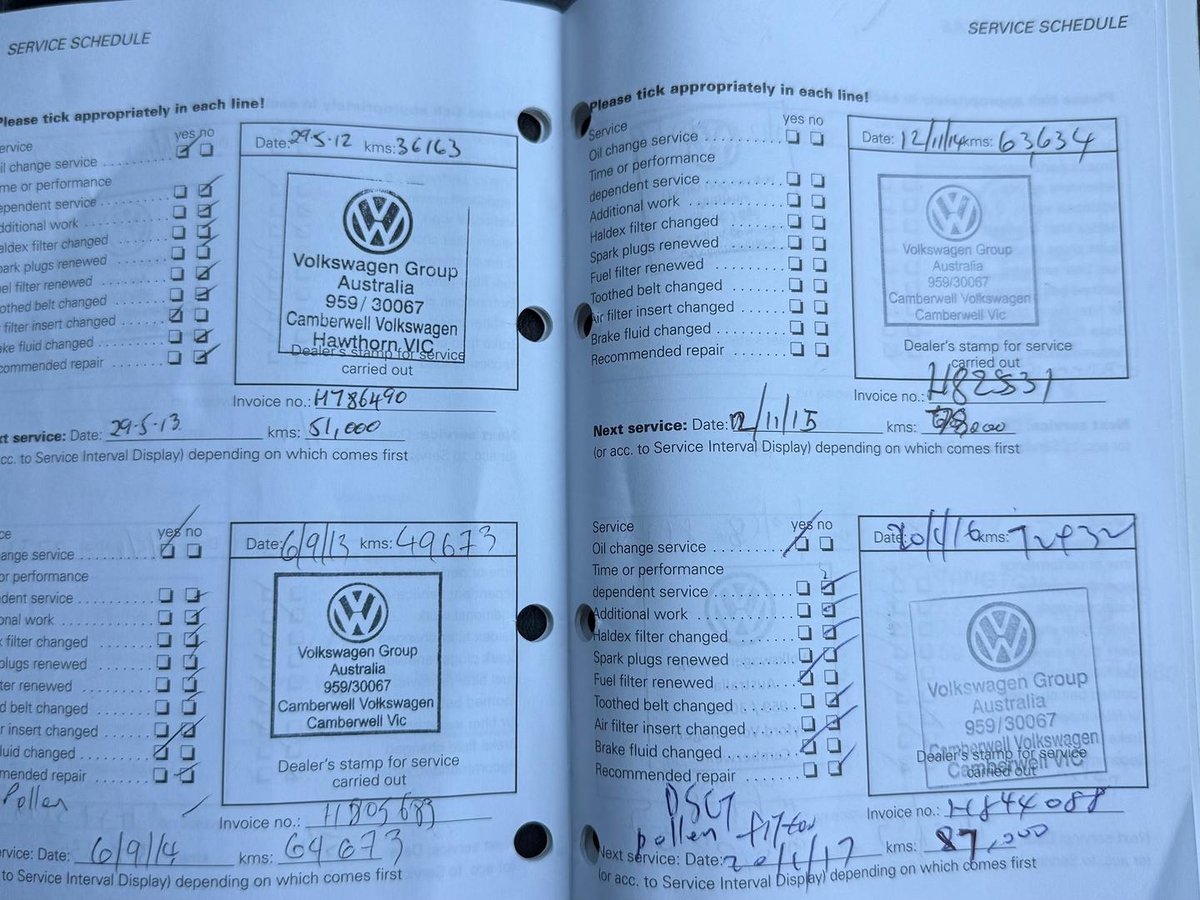 SERVICE SCHEDULE
Please tick appropriately in each line!
service
yes no
oil change service
Time or performance
dependent service
Additional work
Haldex filter changed
spark plugs renewed
fuel filter renewed
Toothed belt changed
filter insert changed
brake fluid changed
recommended repair
Date: 29-5-12 kms: 36163
Volkswagen Group
Australia
959/ 30067
Camberwell Volkswagen
Hawthorn VIC
Dealer's stamp for service
carried out
Invoice no.: H786490
Next service: Date: 29-5-13 kms: 51,000
acc. to Service Interval Display) depending on which comes first
yes no
change service
or performance
dependent service
additional work
filter changed
plugs renewed
filter renewed
toothed belt changed
air insert changed
fluid changed
recommended repair
Pollen
Date: 6/9/13 kms: 49673
Volkswagen Group
Australia
959/30067
Camberwell Volkswagen
Camberwell Vic
Dealer's stamp for service
carried out
Invoice no.: H805683
service: Date: 6/9/14 kms: 64673
to Service Interval Display) depending on which comes first
SERVICE SCHEDULE
Please tick appropriately in each line!
Service
yes no
Oil change service
Time or performance
dependent service
Additional work
Haldex filter changed
Spark plugs renewed
Fuel filter renewed
Toothed belt changed
Air filter insert changed
Brake fluid changed
Recommended repair
Date: 12/11/14 kms: 63,634
Volkswagen Group
Australia
959/30067
Camberwell Volkswagen
Camberwell Vic
Dealer's stamp for service
carried out
Invoice no.: H82531
Next service: Date: 12/11/15 kms: 78,000
(or acc. to Service Interval Display) depending on which comes first
Service
yes no
Oil change service
Time or performance
dependent service
Additional work
Haldex filter changed
Spark plugs renewed
Fuel filter renewed
Toothed belt changed
Air filter insert changed
Brake fluid changed
Recommended repair
DSG
pollen filter
Date: 20/1/16 kms: 72432
Volkswagen Group
Australia
959/30067
Camberwell Volkswagen
Camberwell VIC
Dealer's stamp for service
carried out
Invoice no.: H844088
Next service: Date: 20/1/17 kms: 87,000
(or acc. to Service Interval Display) depending on which comes first